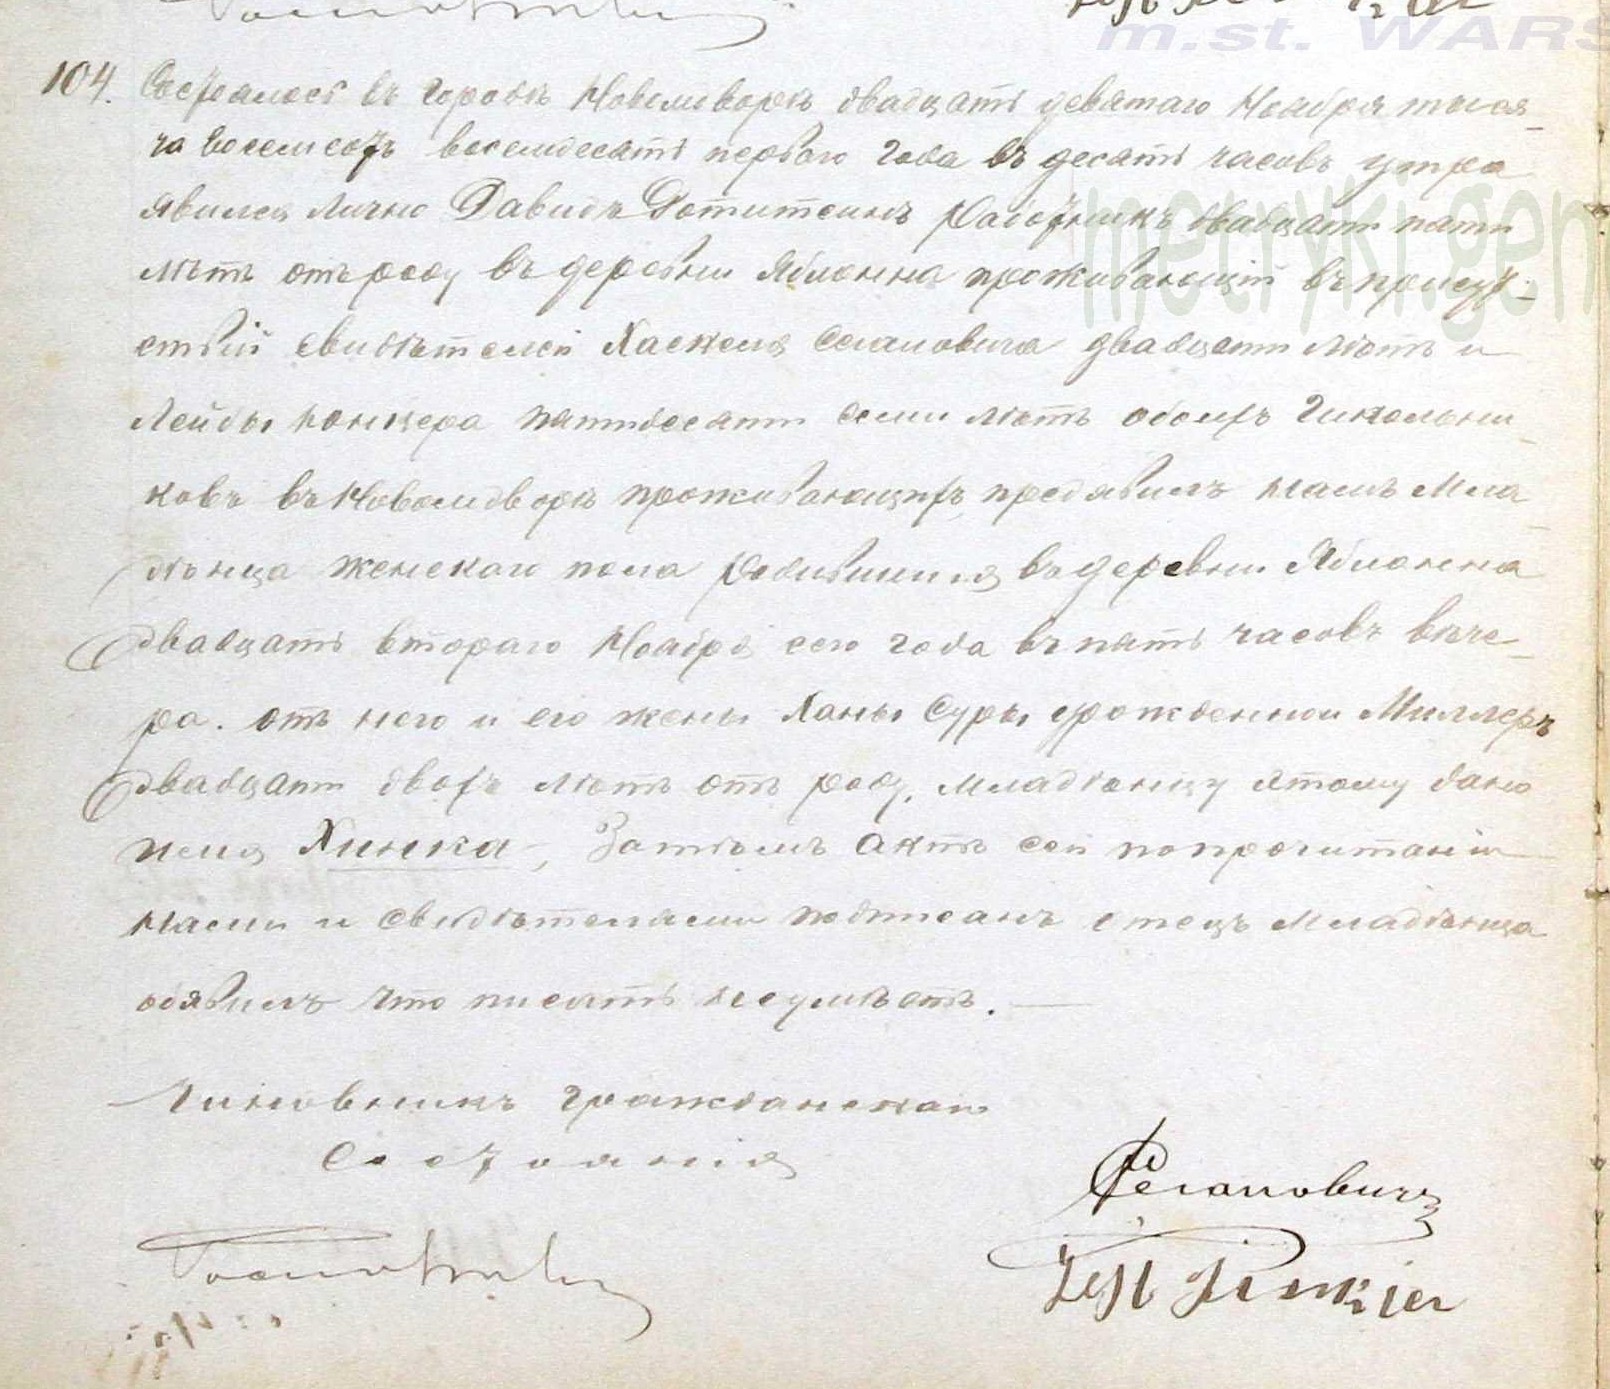 m.st. WARS
104. Состоялось въ городѣ Новомдворѣ двадцать девятаго Ноября тыся-
ча восемсотъ восемдесятъ перваго года въ десять часовъ утра
явился лично Давидъ работникъ двадцати пяти
лѣтъ отъ роду въ деревни Яблонна проживающій въ присут-
ствіи свидѣтелей Хаскеля двадцати лѣтъ и
Лейбы пятидесяти семи лѣтъ обоихъ школьни-
ковъ въ Новомдворѣ проживающихъ, предявилъ намъ мла-
дѣнца женскаго пола родившися въ деревни Яблонна
двадцать втораго Ноября сего года въ пять часовъ вѣче-
ра. отъ него и его жены Ханы Суры урожденной Миллеръ
двадцати двохъ лѣтъ отъ роду, младѣнцу этому дано
имя Хинка, Затѣмъ актъ сей по прочитаніи
нами и свидѣтелями подписанъ отецъ младѣнца
обявилъ что писать неумѣетъ.
Чиновникъ гражданскаго
Состоянія
metryki.gen